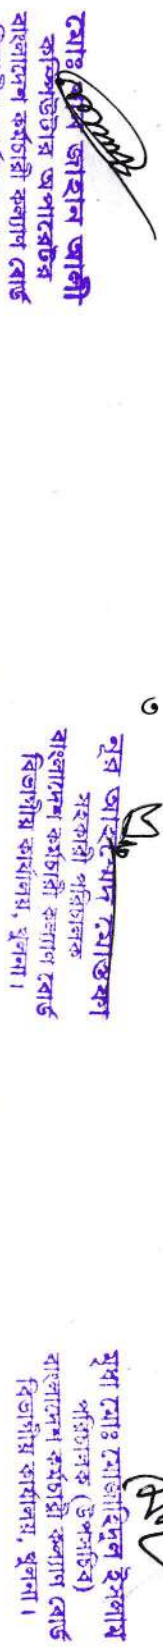 মোঃ জাহান আলী
কম্পিউটার অপারেটর
বাংলাদেশ কর্মচারী কল্যাণ বোর্ড
নুর মোস্তফা
সহকারী পরিচালক
বাংলাদেশ কর্মচারী কল্যাণ বোর্ড
বিভাগীয় কার্যালয়, খুলনা।
মুঃ মোঃ ইসলাম
পরিচালক (উপসচিব)
বাংলাদেশ কর্মচারী কল্যাণ বোর্ড
বিভাগীয় কার্যালয়, খুলনা।